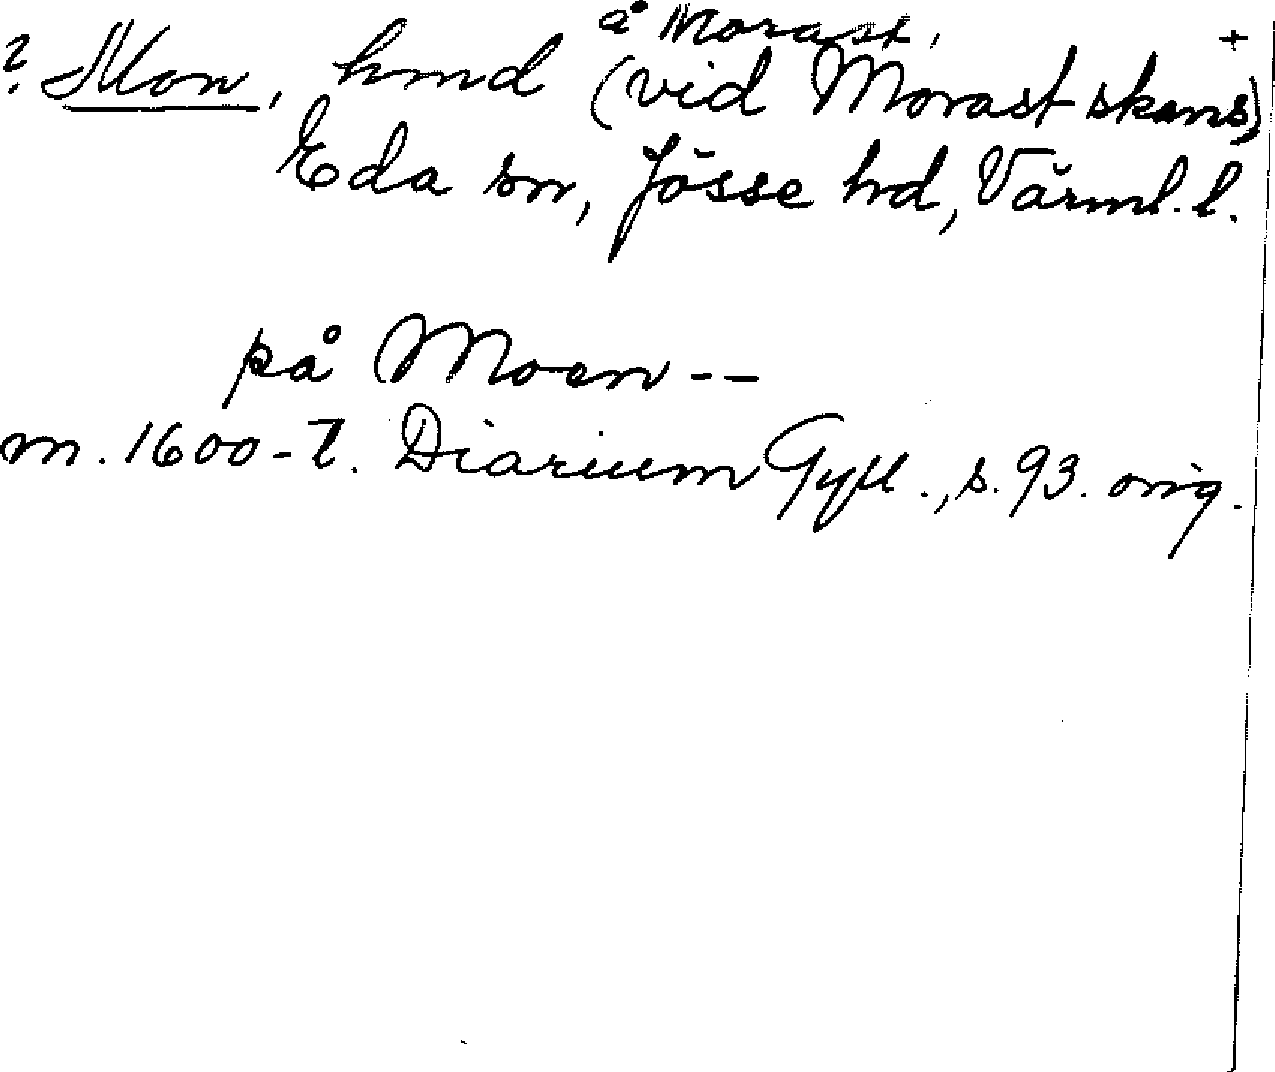 å Morast, +
? Mon, hmd (vid Morast skans)
Eda sn, Jösse hd, Värml. l.
på Moen --
m. 1600-t. Diarium Gyll., s. 93. orig.